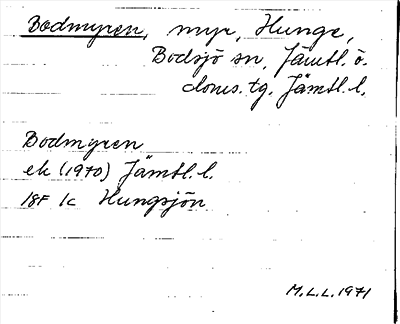 Bodmyren, myr, Hunge,
Bodsjö sn, Jämtl. ö.
doms. tg. Jämtl. l.
Bodmyren
ek (1970) Jämtl. l.
18F 1c Hungsjön
M.L.L. 1971